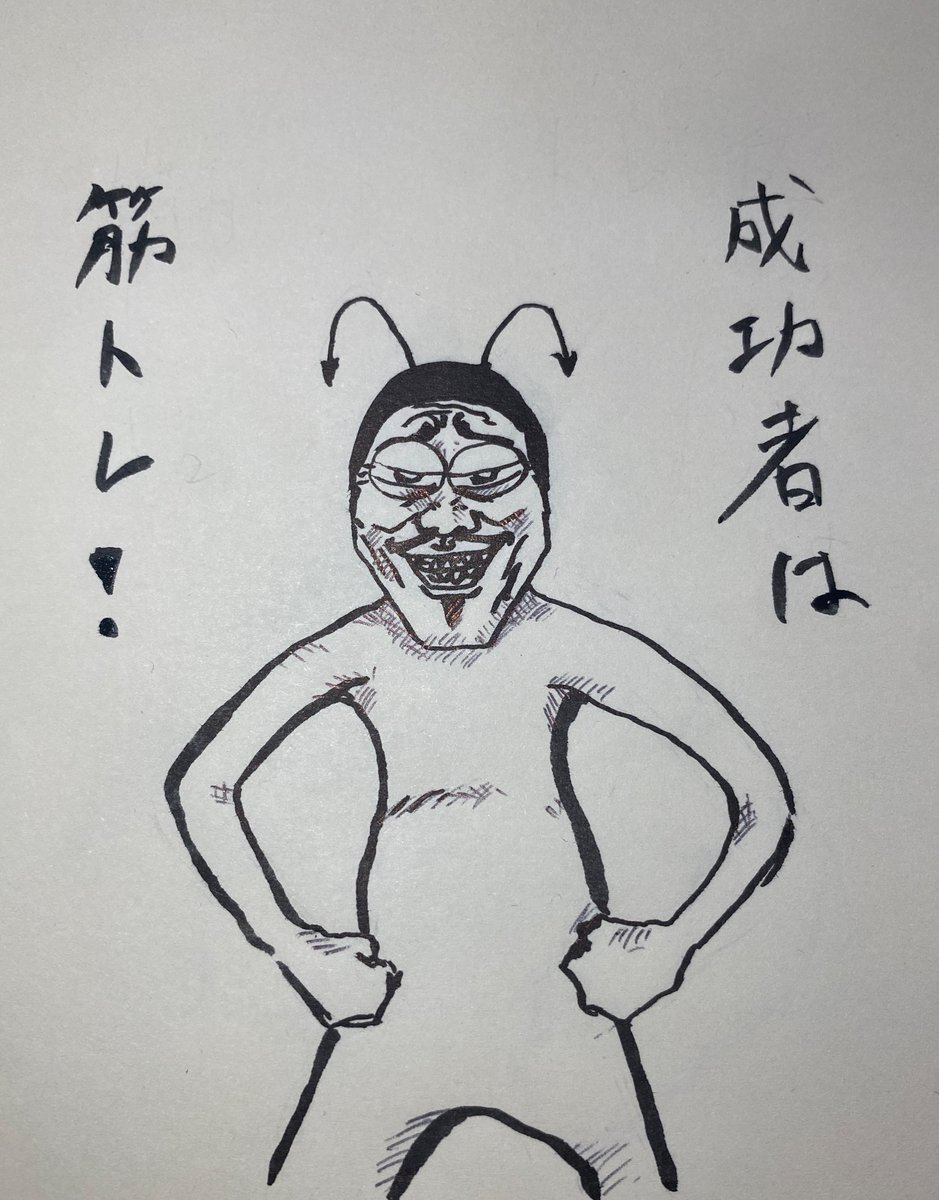 成功者は
筋トレ!